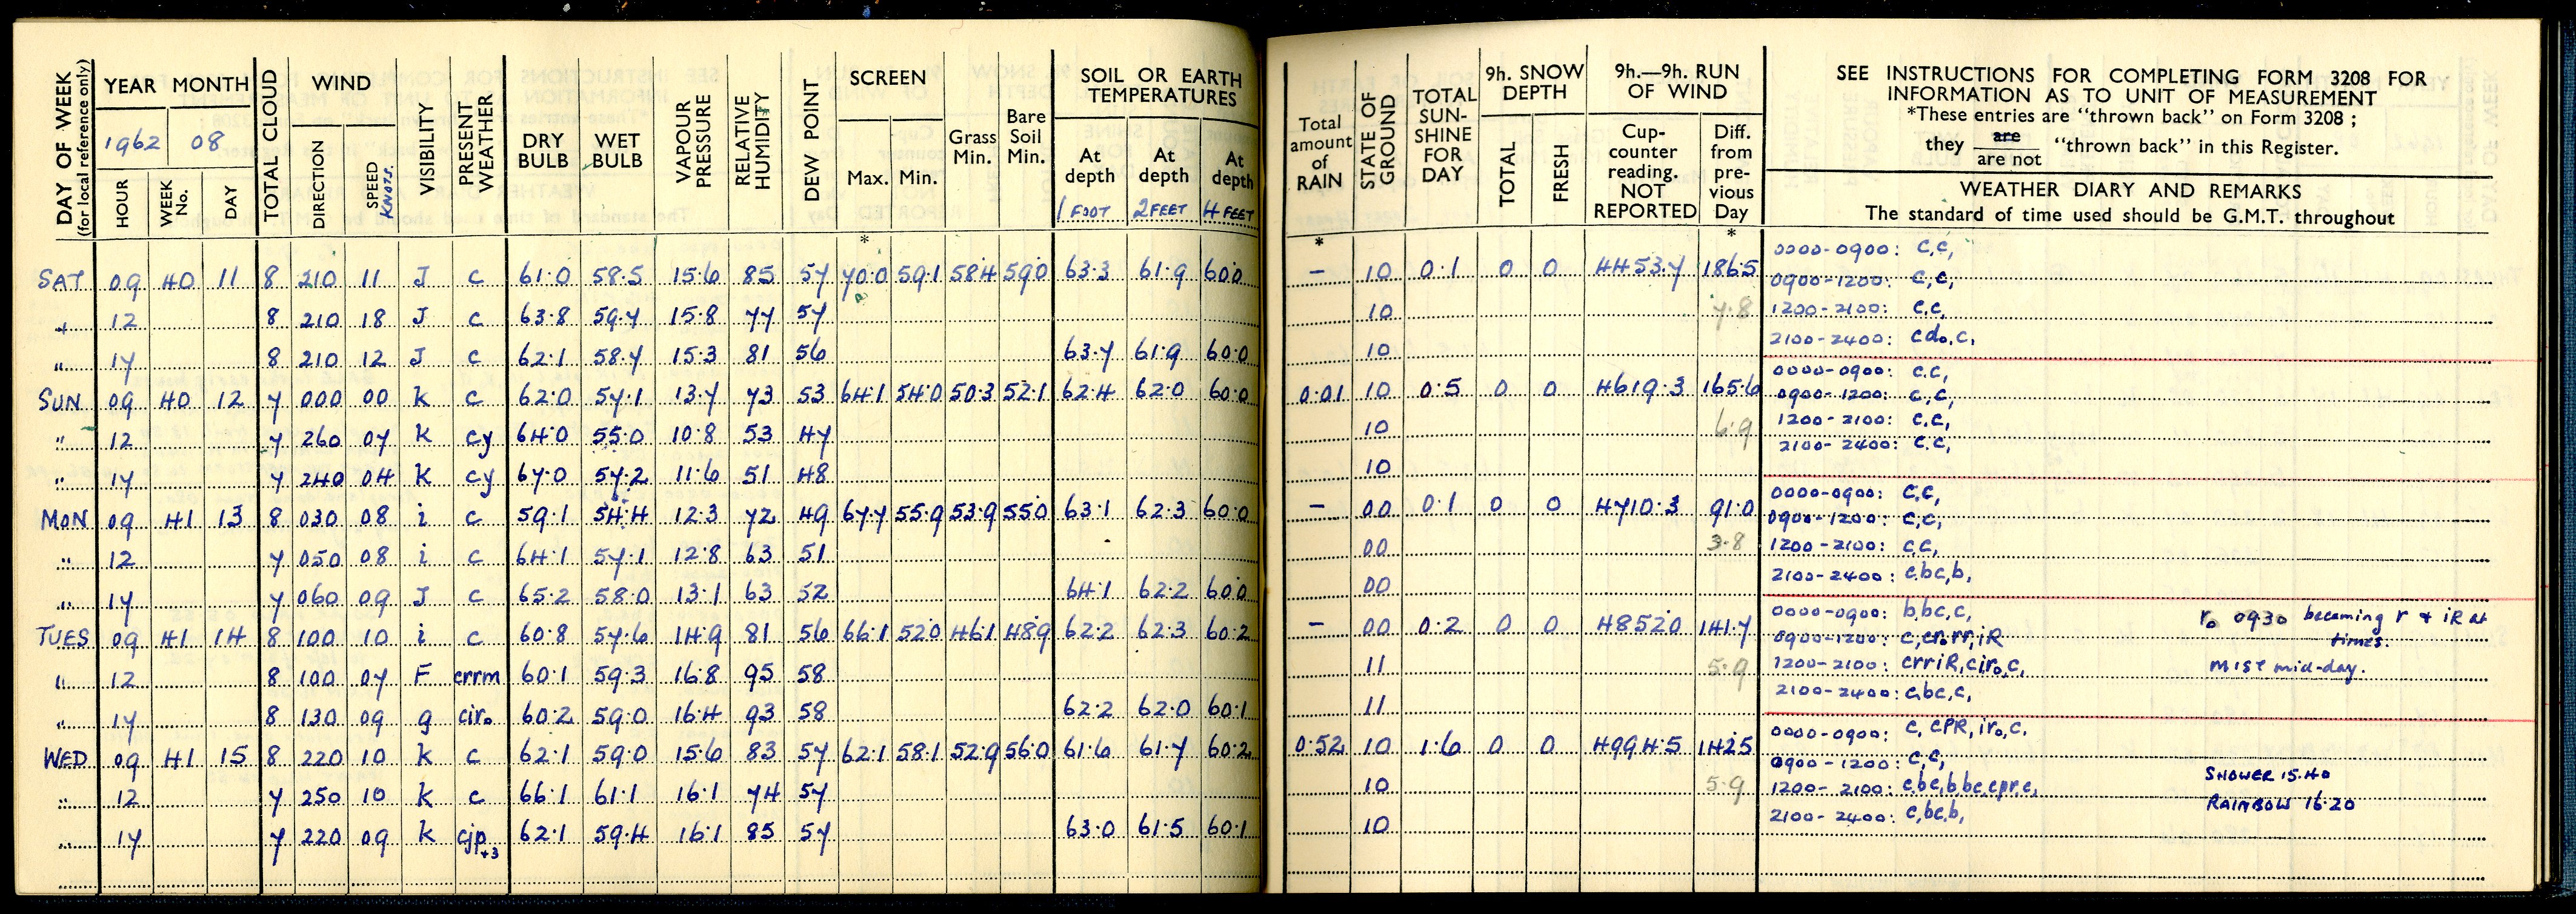 DAY OF WEEK
(for local reference only)
YEAR MONTH
1962 08
HOUR WEEK No. DAY
TOTAL CLOUD
WIND
DIRECTION SPEED KNOTS.
VISIBILITY
PRESENT WEATHER
DRY BULB
WET BULB
VAPOUR PRESSURE
RELATIVE HUMIDITY
DEW POINT
SCREEN
Max. Min.
Grass Min.
Bare Soil Min.
SOIL OR EARTH TEMPERATURES
At depth At depth At depth
1 FOOT 2 FEET 4 FEET
*
SAT 09 40 11 8 210 11 J c 61.0 58.5 15.6 85 57 70.0 59.1 58.4 59.0 63.3 61.9 60.0
" 12 8 210 18 J c 63.8 59.7 15.8 77 57
" 17 8 210 12 J c 62.1 58.7 15.3 81 56 63.7 61.9 60.0
SUN 09 40 12 7 000 00 k c 62.0 57.1 13.7 73 53 64.1 54.0 50.3 52.1 62.4 62.0 60.0
" 12 7 260 07 k cy 64.0 55.0 10.8 53 47
" 17 7 240 04 k cy 67.0 57.2 11.6 51 48
MON 09 41 13 8 030 08 i c 59.1 54.4 12.3 72 49 67.7 55.9 53.9 55.0 63.1 62.3 60.0
" 12 7 050 08 i c 64.1 57.1 12.8 63 51
" 17 7 060 09 J c 65.2 58.0 13.1 63 52 64.1 62.2 60.0
TUES 09 41 14 8 100 10 i c 60.8 57.6 14.9 81 56 66.1 52.0 46.1 48.9 62.2 62.3 60.2
" 12 8 100 07 F crrm 60.1 59.3 16.8 95 58
" 17 8 130 09 g ciro 60.2 59.0 16.4 93 58 62.2 62.0 60.1
WED 09 41 15 8 220 10 k c 62.1 59.0 15.6 83 57 62.1 58.1 52.9 56.0 61.6 61.7 60.2
" 12 7 250 10 k c 66.1 61.1 16.1 74 57
" 17 7 220 09 k cjp+3 62.1 59.4 16.1 85 57 63.0 61.5 60.1
Total amount of RAIN
STATE OF GROUND
TOTAL SUN-SHINE FOR DAY
9h. SNOW DEPTH
TOTAL FRESH
9h.—9h. RUN OF WIND
Cup-counter reading. NOT REPORTED
Diff. from pre-vious Day
SEE INSTRUCTIONS FOR COMPLETING FORM 3208 FOR
INFORMATION AS TO UNIT OF MEASUREMENT
*These entries are "thrown back" on Form 3208 ;
they are / are not "thrown back" in this Register.
WEATHER DIARY AND REMARKS
The standard of time used should be G.M.T. throughout
* *
0000-0900: c,c,
– 10 0.1 0 0 4453.7 186.5
0900-1200: c,c,
10 7.8 1200-2100: c.c,
10 2100-2400: cdo,c,
0000-0900: c.c,
0.01 10 0.5 0 0 4619.3 165.6
0900-1200: c,c,
10 6.9 1200-2100: c.c,
2100-2400: c.c,
10
0000-0900: c,c,
– 00 0.1 0 0 4710.3 91.0
0900-1200: c,c,
00 3.8 1200-2100: c,c,
00 2100-2400: c,bc,b,
0000-0900: b,bc,c, ro 0930 becoming r & iR at
– 00 0.2 0 0 4852.0 141.7
0900-1200: c,cro,rr,iR times.
11 5.9 1200-2100: crriR,ciro,c, MIST mid-day.
11 2100-2400: c,bc,c,
0000-0900: c, cPR, iro,c.
0.52 10 1.6 0 0 4994.5 142.5
0900-1200: c,c, SHOWER 15.40
10 5.9 1200-2100: c,bc,b,bc,cpr,c, RAINBOW 16.20
10 2100-2400: c,bc,b,